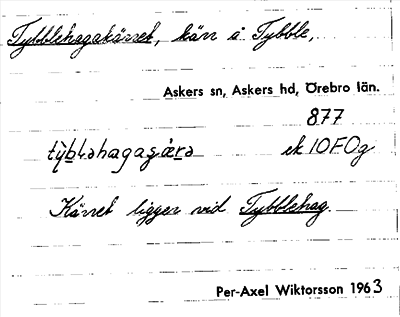 Tybblehagakärret, kärr å Tybble,
Askers sn, Askers hd, Örebro län.
877
ek 10F0g
Kärret ligger vid Tybblehag.
Per-Axel Wiktorsson 1963